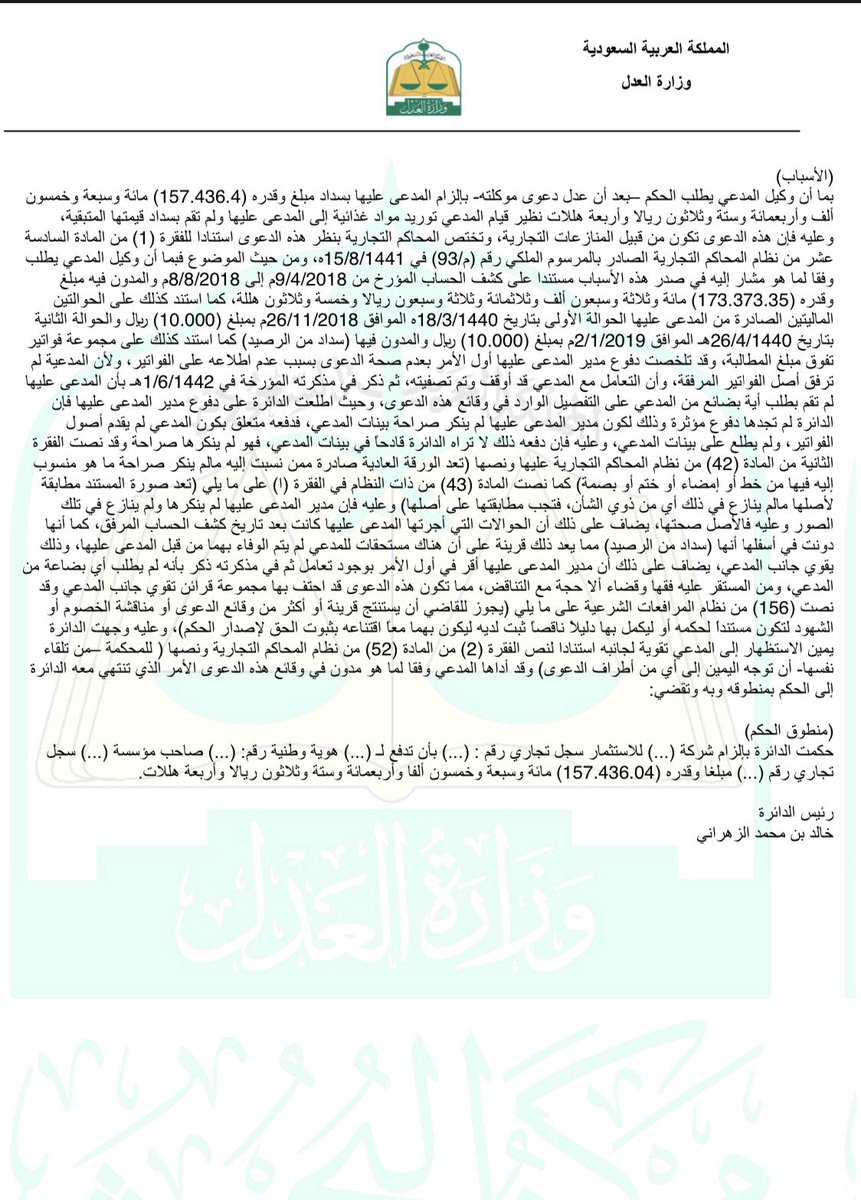 المملكة العربية السعودية
وزارة العدل
وزارة العدل
(الأسباب)
بما أن وكيل المدعي يطلب الحكم –بعد أن عدل دعوى موكلته- بإلزام المدعى عليها بسداد مبلغ وقدره (157.436.4) مائة وسبعة وخمسون
ألف وأربعمائة وستة وثلاثون ريالا وأربعة هللات نظير قيام المدعي توريد مواد غذائية إلى المدعى عليها ولم تقم بسداد قيمتها المتبقية،
وعليه فإن هذه الدعوى تكون من قبيل المنازعات التجارية، وتختص المحاكم التجارية بنظر هذه الدعوى استنادا للفقرة (1) من المادة السادسة
عشر من نظام المحاكم التجارية الصادر بالمرسوم الملكي رقم (م/93) في 15/8/1441ه، ومن حيث الموضوع فبما أن وكيل المدعي يطلب
وفقا لما هو مشار إليه في صدر هذه الأسباب مستندا على كشف الحساب المؤرخ من 9/4/2018م إلى 8/8/2018م والمدون فيه مبلغ
وقدره (173.373.35) مائة وثلاثة وسبعون ألف وثلاثمائة وثلاثة وسبعون ريالا وخمسة وثلاثون هللة، كما استند كذلك على الحوالتين
الماليتين الصادرة من المدعى عليها الحوالة الأولى بتاريخ 18/3/1440ه الموافق 26/11/2018م بمبلغ (10.000) ريال والحوالة الثانية
بتاريخ 26/4/1440هـ الموافق 2/1/2019م بمبلغ (10.000) ريال والمدون فيها (سداد من الرصيد) كما استند كذلك على مجموعة فواتير
تفوق مبلغ المطالبة، وقد تلخصت دفوع مدير المدعى عليها أول الأمر بعدم صحة الدعوى بسبب عدم اطلاعه على الفواتير، ولأن المدعية لم
ترفق أصل الفواتير المرفقة، وأن التعامل مع المدعي قد أوقف وتم تصفيته، ثم ذكر في مذكرته المؤرخة في 1/6/1442هـ بأن المدعى عليها
لم تقم بطلب أية بضائع من المدعي على التفصيل الوارد في وقائع هذه الدعوى، وحيث اطلعت الدائرة على دفوع مدير المدعى عليها فإن
الدائرة لم تجدها دفوع مؤثرة وذلك لكون مدير المدعى عليها لم ينكر صراحة بينات المدعي، فدفعه متعلق بكون المدعي لم يقدم أصول
الفواتير، ولم يطلع على بينات المدعي، وعليه فإن دفعه ذلك لا تراه الدائرة قادحاً في بينات المدعي، فهو لم ينكرها صراحة وقد نصت الفقرة
الثانية من المادة (42) من نظام المحاكم التجارية عليها ونصها (تعد الورقة العادية صادرة ممن نسبت إليه مالم ينكر صراحة ما هو منسوب
إليه فيها من خط أو إمضاء أو ختم أو بصمة) كما نصت المادة (43) من ذات النظام في الفقرة (ا) على ما يلي (تعد صورة المستند مطابقة
لأصلها مالم ينازع في ذلك أي من ذوي الشأن، فتجب مطابقتها على أصلها) وعليه فإن مدير المدعى عليها لم ينكرها ولم ينازع في تلك
الصور وعليه فالأصل صحتها، يضاف على ذلك أن الحوالات التي أجرتها المدعى عليها كانت بعد تاريخ كشف الحساب المرفق، كما أنها
دونت في أسفلها أنها (سداد من الرصيد) مما يعد ذلك قرينة على أن هناك مستحقات للمدعي لم يتم الوفاء بهما من قبل المدعى عليها، وذلك
يقوي جانب المدعي، يضاف على ذلك أن مدير المدعى عليها أقر في أول الأمر بوجود تعامل ثم في مذكرته ذكر بأنه لم يطلب أي بضاعة من
المدعي، ومن المستقر عليه فقها وقضاء ألا حجة مع التناقض، مما تكون هذه الدعوى قد احتف بها مجموعة قرائن تقوي جانب المدعي وقد
نصت (156) من نظام المرافعات الشرعية على ما يلي (يجوز للقاضي أن يستنتج قرينة أو أكثر من وقائع الدعوى أو مناقشة الخصوم أو
الشهود لتكون مستنداً لحكمه أو ليكمل بها دليلاً ناقصاً ثبت لديه ليكون بهما معاً اقتناعه بثبوت الحق لإصدار الحكم)، وعليه وجهت الدائرة
يمين الاستظهار إلى المدعي تقوية لجانبه استنادا لنص الفقرة (2) من المادة (52) من نظام المحاكم التجارية ونصها ( للمحكمة –من تلقاء
نفسها- أن توجه اليمين إلى أي من أطراف الدعوى) وقد أداها المدعي وفقا لما هو مدون في وقائع هذه الدعوى الأمر الذي تنتهي معه الدائرة
إلى الحكم بمنطوقه وبه وتقضي:
(منطوق الحكم)
حكمت الدائرة بإلزام شركة (...) للاستثمار سجل تجاري رقم : (...) بأن تدفع لـ (...) هوية وطنية رقم: (...) صاحب مؤسسة (...) سجل
تجاري رقم (...) مبلغا وقدره (157.436.04) مائة وسبعة وخمسون ألفا وأربعمائة وستة وثلاثون ريالا وأربعة هللات.
رئيس الدائرة
خالد بن محمد الزهراني
وزارة العدل